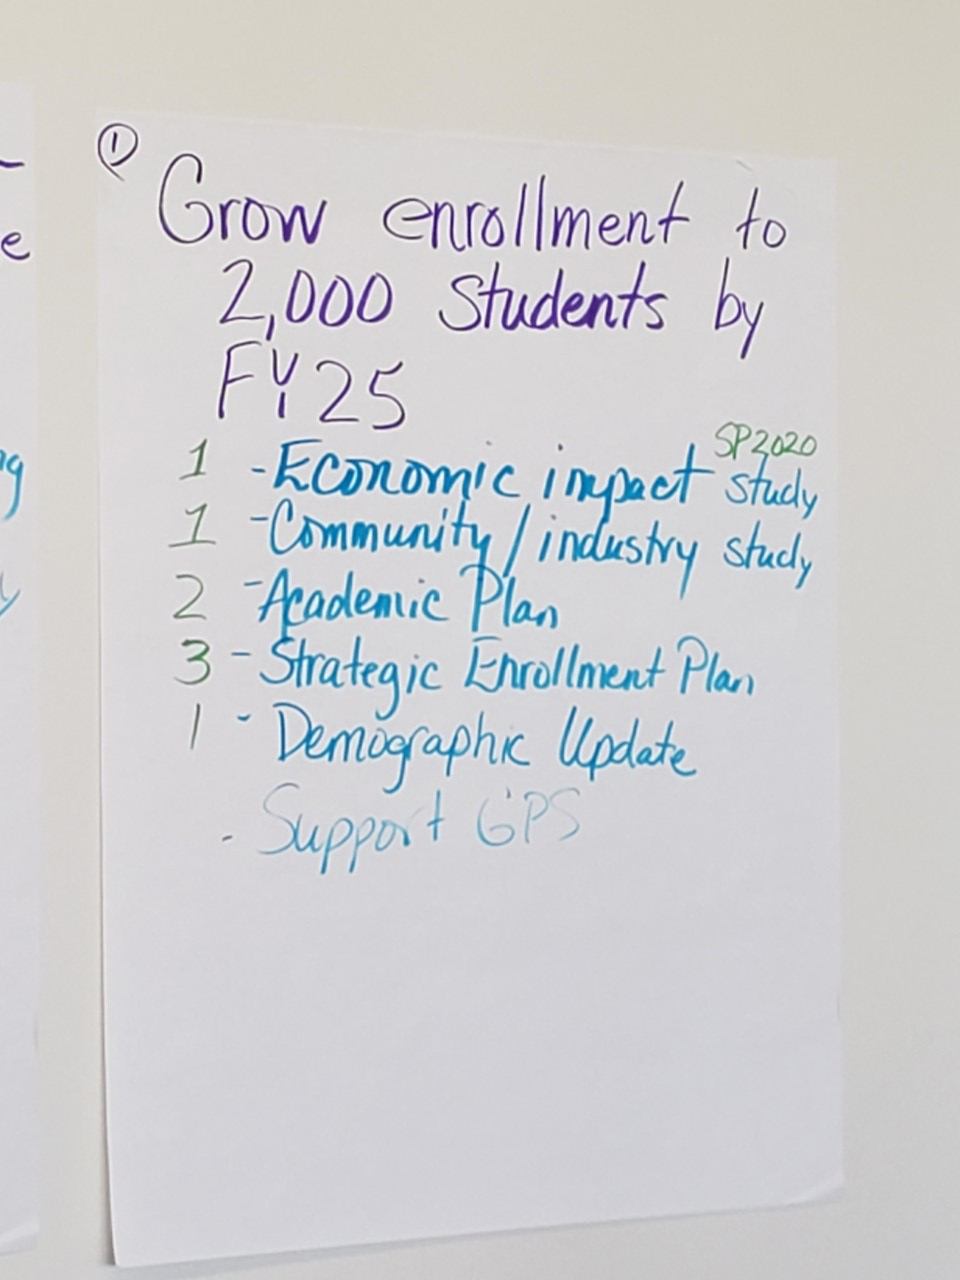 ①
Grow enrollment to
2,000 Students by
FY25
SP2020
1 - Economic impact study
1 - Community / industry study
2 - Academic Plan
3 - Strategic Enrollment Plan
1 - Demographic Update
- Support GPS